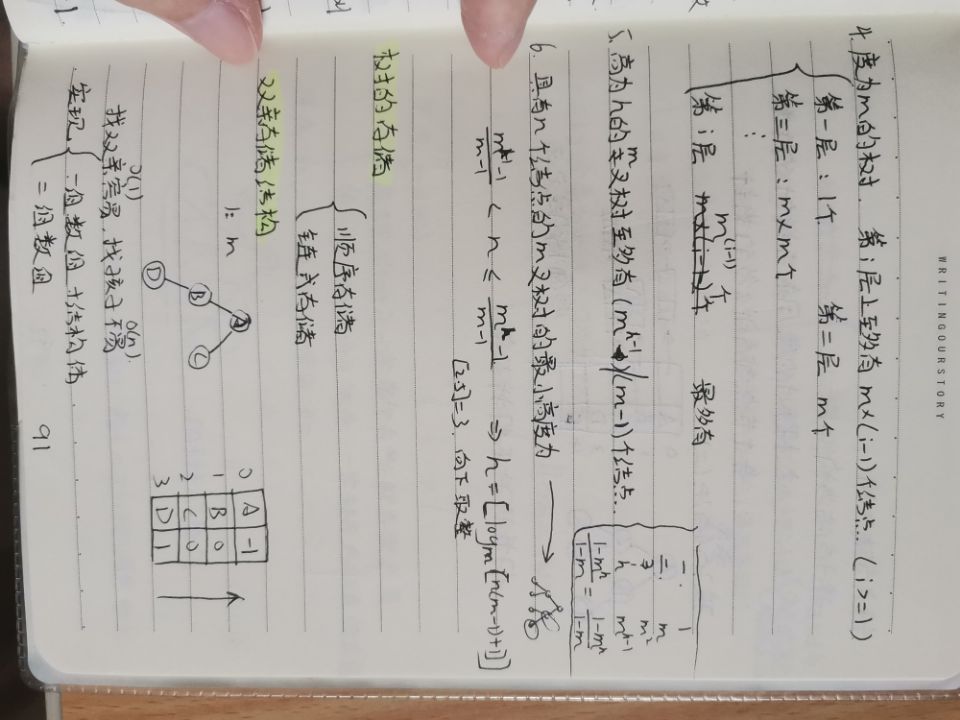 WRITINGOURSTORY
4. 度为m的树, 第i层上至多有 m×(i-1)个结点... (i>=1)
第一层: 1个 第二层 m个
第三层: m×m个
⋮
第i层 m^(i-1)个 最多有
5. 高为h的m叉树至多有 (m^h-1)/(m-1)个结点...
一: 1
二: m
3 m²
h m^(h-1)
(1-m^h)/(1-m) = (1-m^h)/(1-m)
6. 具有n个结点的m叉树的最小高度为 ⟶
(m^(h-1)-1)/(m-1) < n ≤ (m^h-1)/(m-1) ⇒ h = [logm[n(m-1)+1]]
[2.5]=3. 向下取整
树的存储
顺序存储
链式存储
双亲存储结构
1: m
A
B
C
D
0 A -1
1 B 0
2 C 0
3 D 1
O(1) O(n)
找双亲容易, 找孩子不易
实现 一个数组 + 结构体
= 二个数组
91